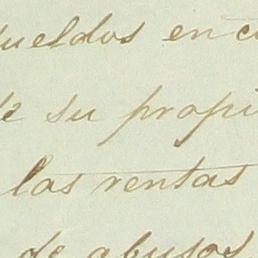 sueldos en c
de su propi
las rentas
de abusos.